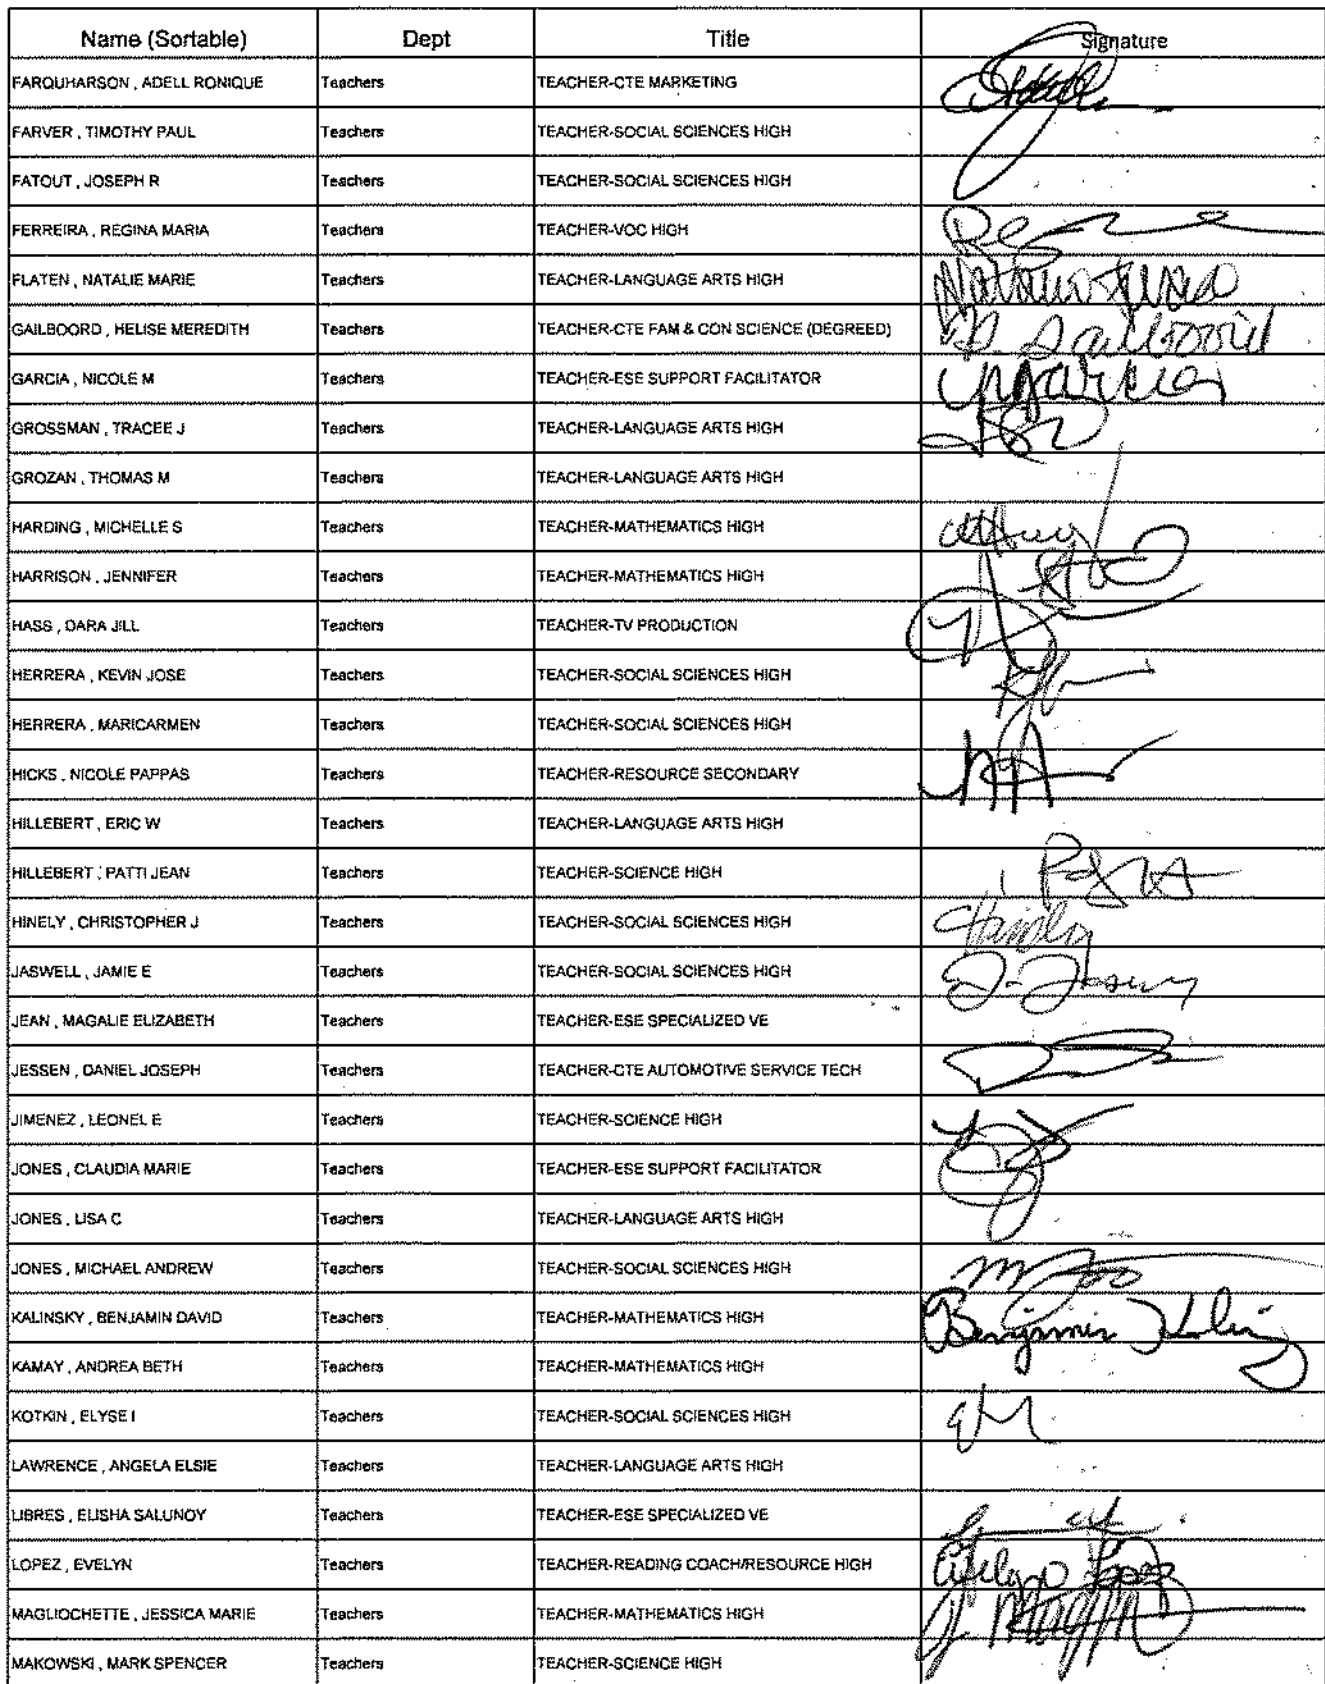 Name (Sortable) Dept Title Signature
FARQUHARSON , ADELL RONIQUE Teachers TEACHER-CTE MARKETING
FARVER , TIMOTHY PAUL Teachers TEACHER-SOCIAL SCIENCES HIGH
FATOUT , JOSEPH R Teachers TEACHER-SOCIAL SCIENCES HIGH
FERREIRA , REGINA MARIA Teachers TEACHER-VOC HIGH
FLATEN , NATALIE MARIE Teachers TEACHER-LANGUAGE ARTS HIGH
GAILBOORD , HELISE MEREDITH Teachers TEACHER-CTE FAM & CON SCIENCE (DEGREED) Gailboord
GARCIA , NICOLE M Teachers TEACHER-ESE SUPPORT FACILITATOR
GROSSMAN , TRACEE J Teachers TEACHER-LANGUAGE ARTS HIGH
GROZAN , THOMAS M Teachers TEACHER-LANGUAGE ARTS HIGH
HARDING , MICHELLE S Teachers TEACHER-MATHEMATICS HIGH
HARRISON , JENNIFER Teachers TEACHER-MATHEMATICS HIGH
HASS , DARA JILL Teachers TEACHER-TV PRODUCTION
HERRERA , KEVIN JOSE Teachers TEACHER-SOCIAL SCIENCES HIGH
HERRERA , MARICARMEN Teachers TEACHER-SOCIAL SCIENCES HIGH
HICKS , NICOLE PAPPAS Teachers TEACHER-RESOURCE SECONDARY
HILLEBERT , ERIC W Teachers TEACHER-LANGUAGE ARTS HIGH
HILLEBERT , PATTI JEAN Teachers TEACHER-SCIENCE HIGH
HINELY , CHRISTOPHER J Teachers TEACHER-SOCIAL SCIENCES HIGH
JASWELL , JAMIE E Teachers TEACHER-SOCIAL SCIENCES HIGH
JEAN , MAGALIE ELIZABETH Teachers TEACHER-ESE SPECIALIZED VE
JESSEN , DANIEL JOSEPH Teachers TEACHER-CTE AUTOMOTIVE SERVICE TECH
JIMENEZ , LEONEL E Teachers TEACHER-SCIENCE HIGH
JONES , CLAUDIA MARIE Teachers TEACHER-ESE SUPPORT FACILITATOR
JONES , LISA C Teachers TEACHER-LANGUAGE ARTS HIGH
JONES , MICHAEL ANDREW Teachers TEACHER-SOCIAL SCIENCES HIGH
KALINSKY , BENJAMIN DAVID Teachers TEACHER-MATHEMATICS HIGH Benjamin
KAMAY , ANDREA BETH Teachers TEACHER-MATHEMATICS HIGH
KOTKIN , ELYSE I Teachers TEACHER-SOCIAL SCIENCES HIGH
LAWRENCE , ANGELA ELSIE Teachers TEACHER-LANGUAGE ARTS HIGH
LIBRES , ELISHA SALUNOY Teachers TEACHER-ESE SPECIALIZED VE
LOPEZ , EVELYN Teachers TEACHER-READING COACH/RESOURCE HIGH Evelyn Lopez
MAGLIOCHETTE , JESSICA MARIE Teachers TEACHER-MATHEMATICS HIGH
MAKOWSKI , MARK SPENCER Teachers TEACHER-SCIENCE HIGH